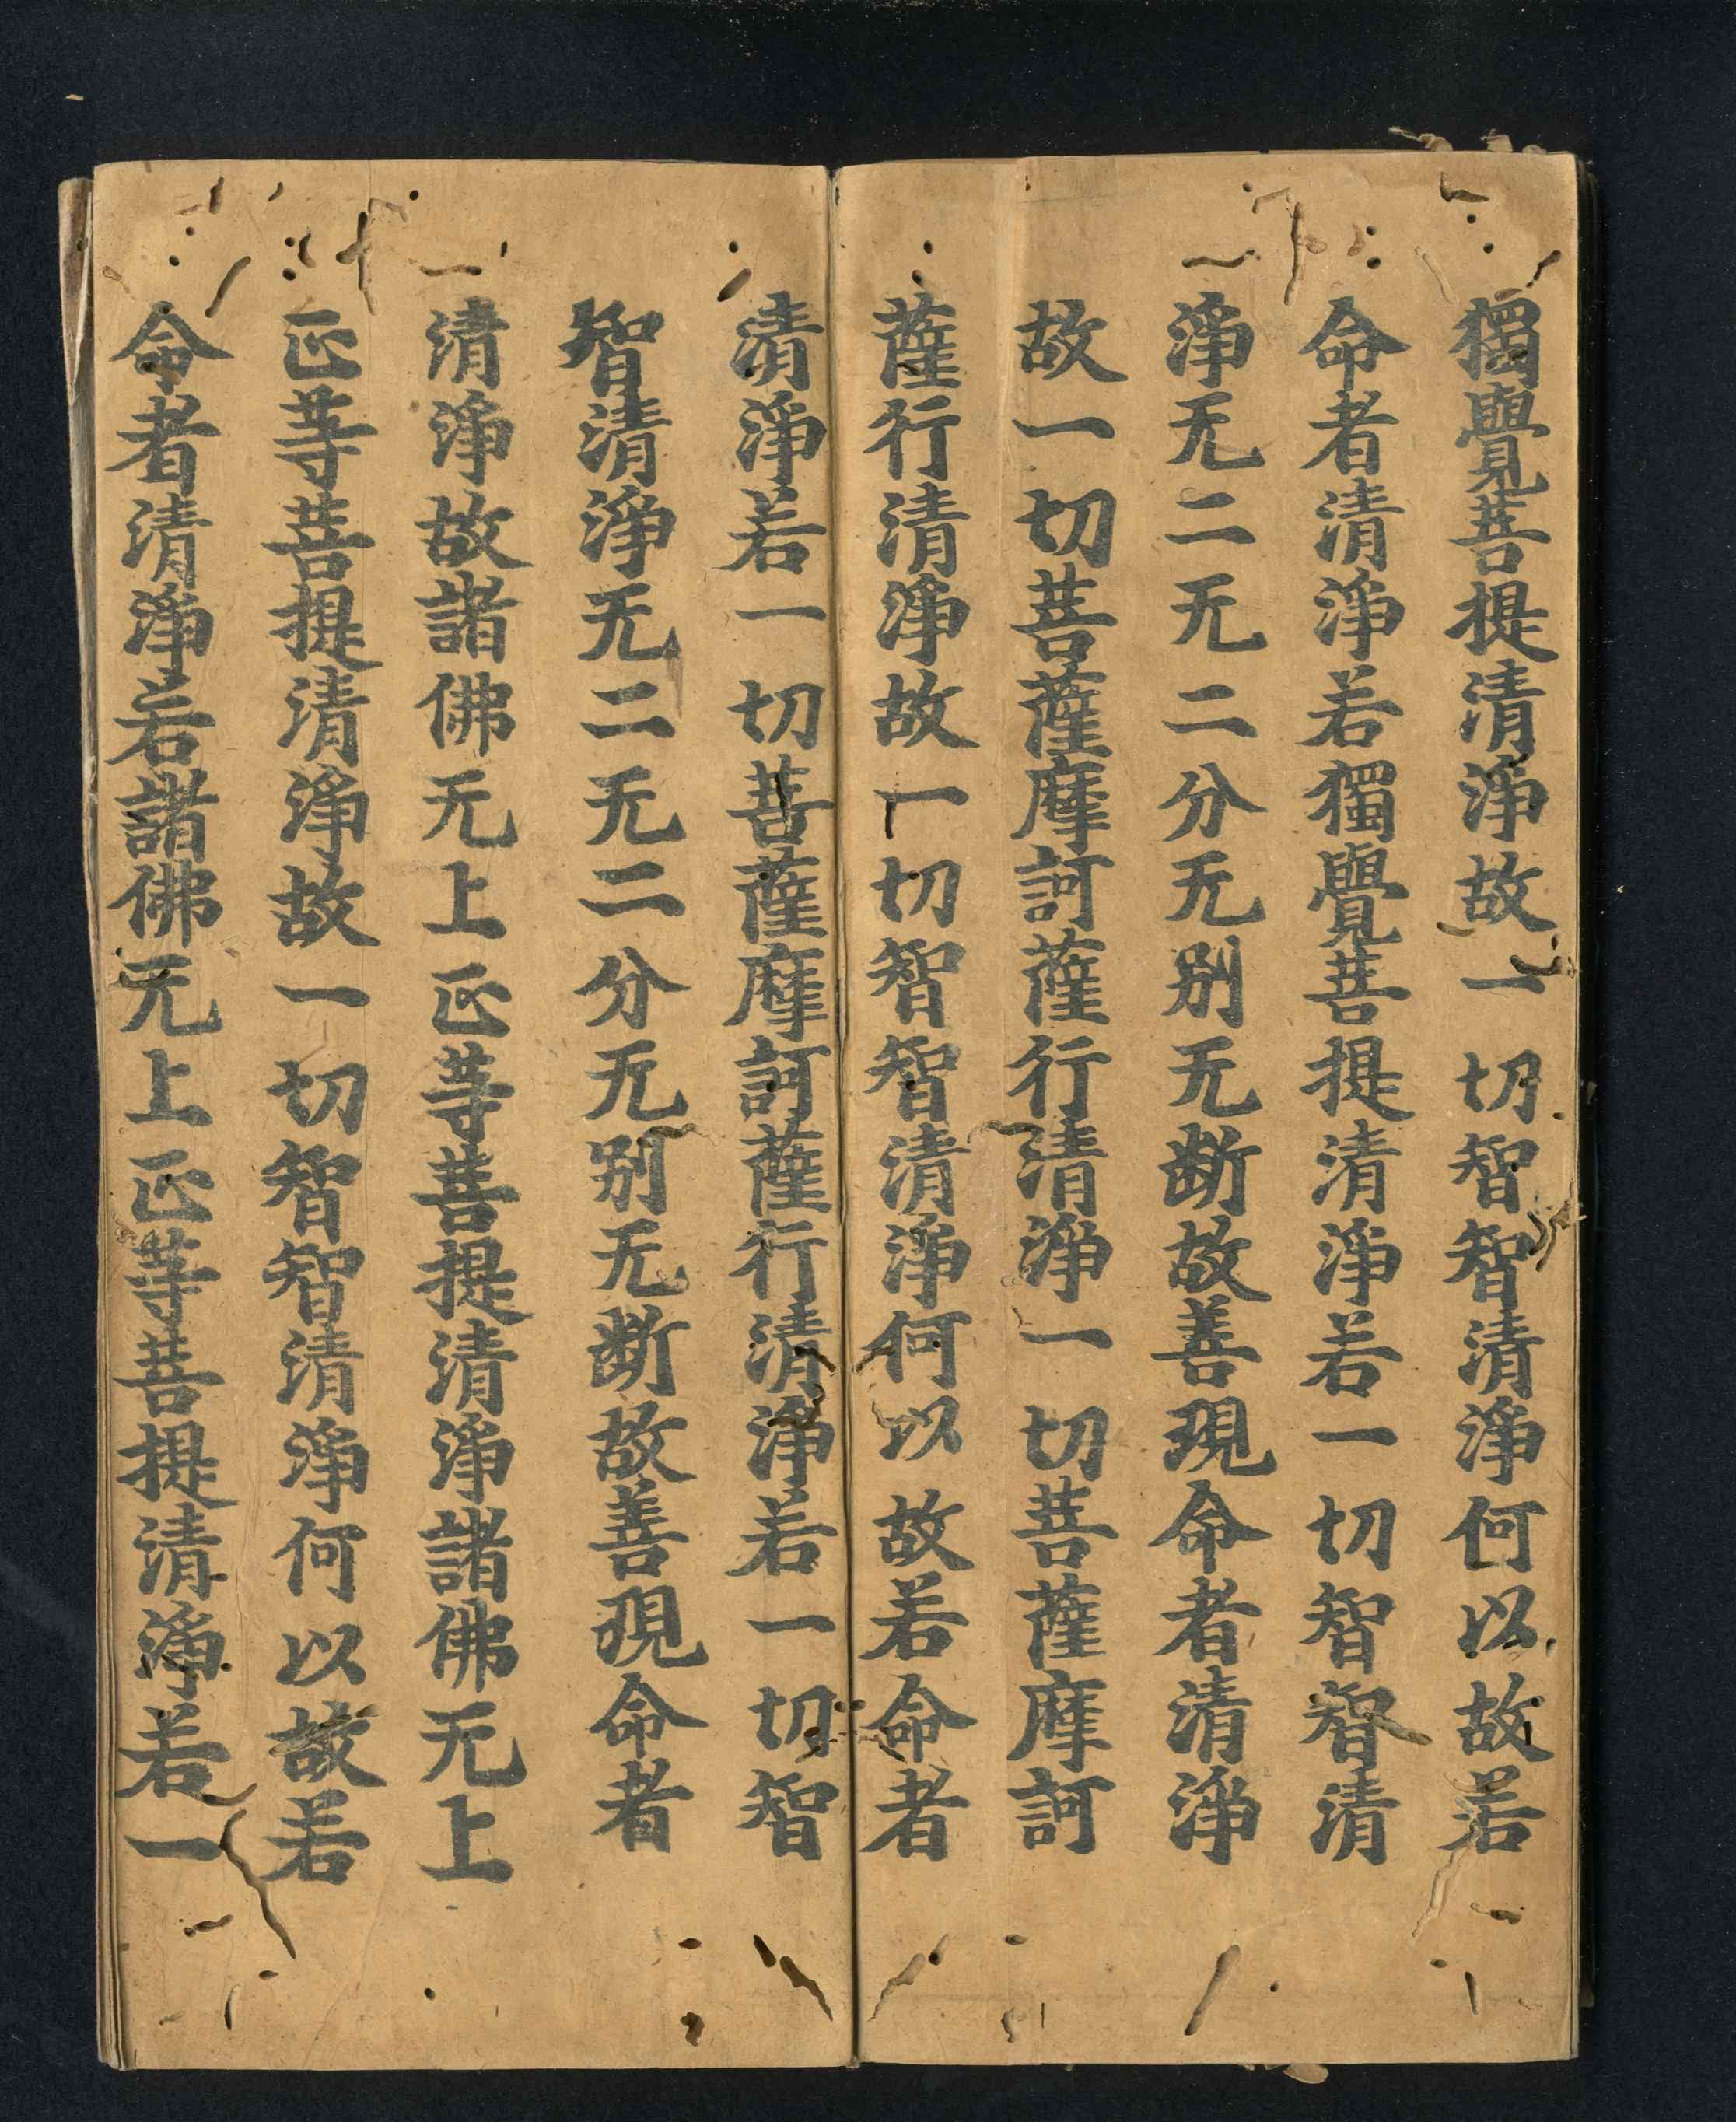 獨覺菩提清淨故一切智智清淨何以故若
命者清淨若獨覺菩提清淨若一切智智清
淨无二无二分无别无断故善現命者清淨
故一切菩薩摩訶薩行清淨一切菩薩摩訶
薩行清淨故一切智智清淨何以故若命者
清淨若一切菩薩摩訶薩行清淨若一切智
智清淨无二无二分无别无断故善現命者
清淨故諸佛无上正等菩提清淨諸佛无上
正等菩提清淨故一切智智清淨何以故若
命者清淨若諸佛无上正等菩提清淨若一